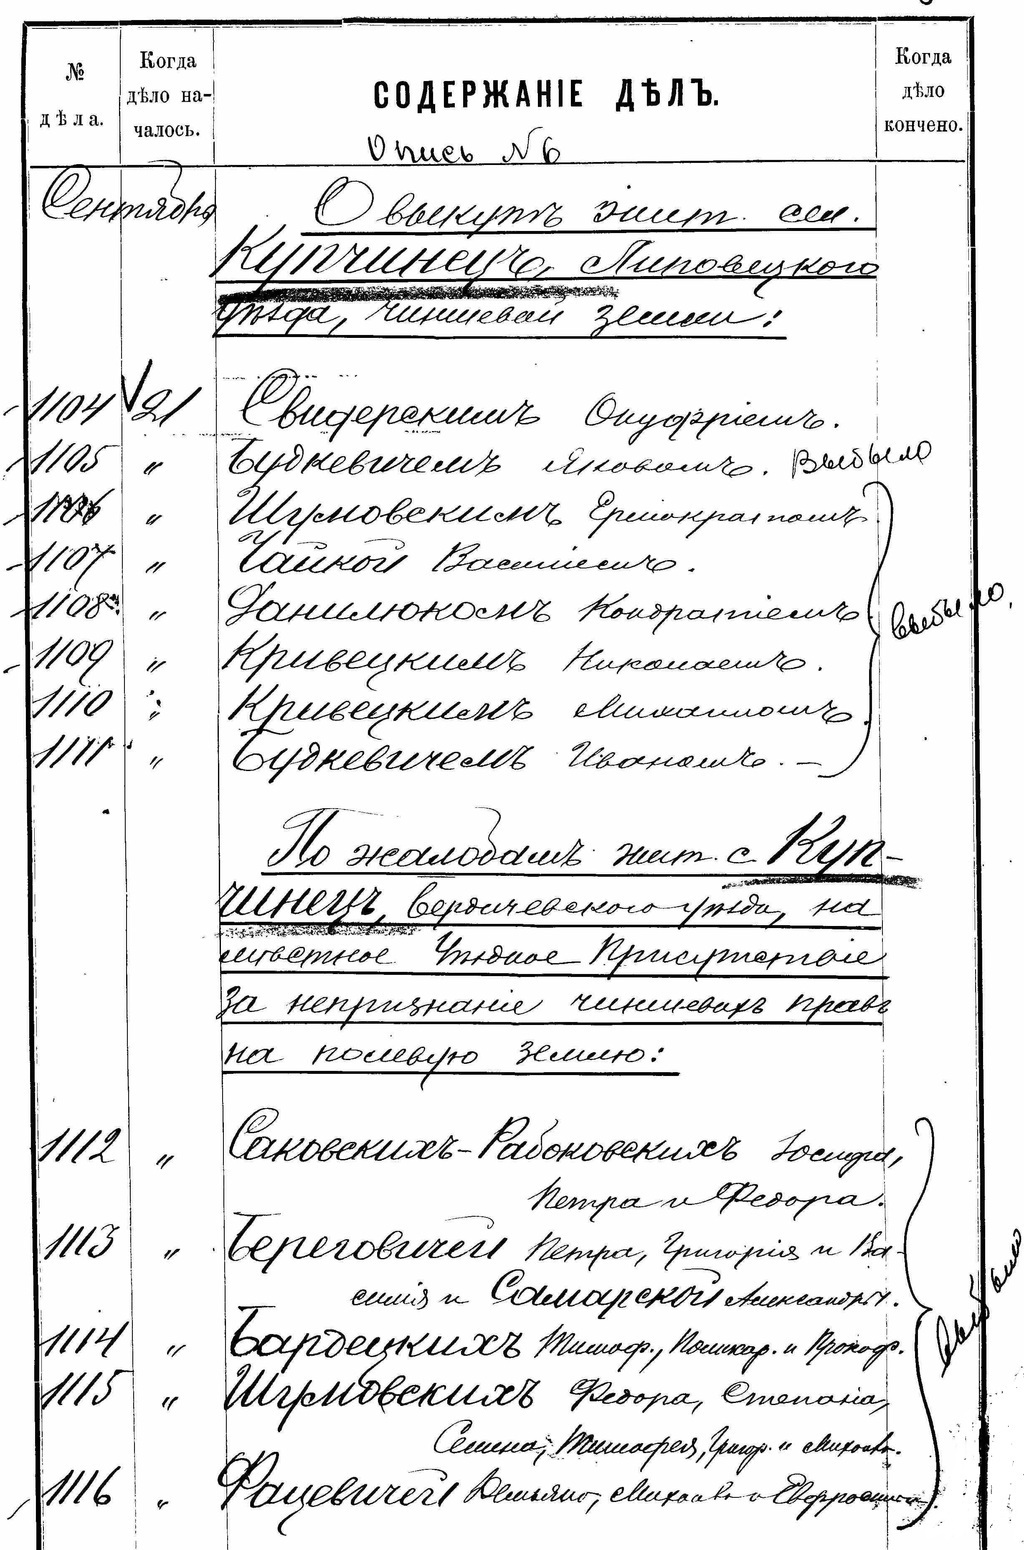 № дѣла.
Когда дѣло началось.
СОДЕРЖАНІЕ ДѢЛЪ.
Когда дѣло кончено.
Опись №6
Сентября
О выкупѣ жит. сел.
Купчинецъ, Липовецкого
уѣзда, чиншевой земли:
1104 21 Свидерскимъ Онуфріемъ.
1105 „ Будкевичемъ Яковомъ. Выбыло
1106 „ Шумовскимъ Ермократомъ
1107 „ Чайкой Василіемъ.
1108 „ Данилюкомъ Кондратіемъ
1109 „ Кривецкимъ Николаемъ.
1110 „ Кривецкимъ Михаиломъ
1111 „ Будкевичемъ Иваномъ. –
выбыло
По жалобамъ жит. с. Куп-
чинецъ, Бердичевского уѣзда, на
мѣстное Уѣздное Присутствіе
за непризнаніе чиншевыхъ правъ
на полевую землю:
1112 „ Саковскихъ-Рабоковскихъ Іосифа,
Петра и Федора.
1113 „ Береговичей Петра, Григорія и Ва-
силія и Самарской Александры.
1114 „ Бардецкихъ Тимоф., Поликар. и Прокоф.
1115 „ Шумовскихъ Федора, Степана,
Семена, Тимофея, Григор. и Михаила.
1116 „ Фацевичей Демьяна, Михаила и Евфросиніи.
выбыло